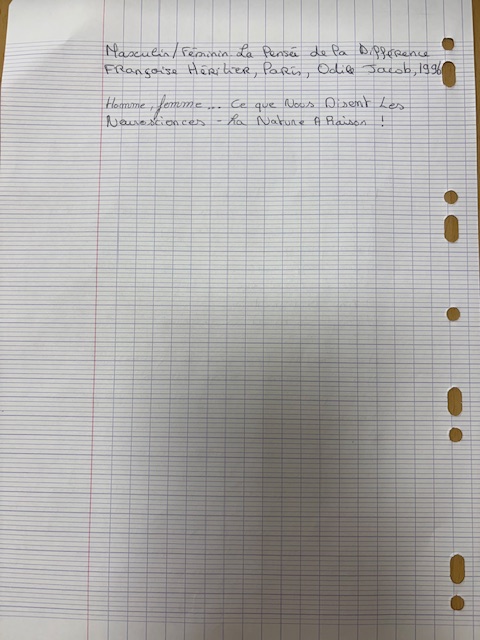 Masculin/Féminin La Pensé de la Différence
Françoise Héritier, Paris, Odile Jacob, 1996
Homme, femme... Ce que Nous Disent Les
Neurosciences - La Nature A Raison !